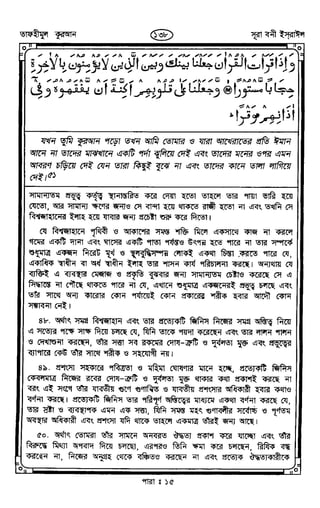 তাফহীমুল কুরআন
১৩৮
সূরা বনী ইসরাঈল
وَإِذَا قَرَأْتَ الْقُرْآنَ جَعَلْنَا بَيْنَكَ وَبَيْنَ الَّذِينَ لَا يُؤْمِنُونَ بِالْآخِرَةِ
حِجَابًا مَّسْتُورًا وَجَعَلْنَا عَلَىٰ قُلُوبِهِمْ أَكِنَّةً أَن يَفْقَهُوهُ وَفِي
آذَانِهِمْ وَقْرًا
যখন তুমি কুরআন পড়ো তখন আমি তোমার ও যারা আখেরাতের প্রতি ঈমান
আনে না তাদের মাঝখানে একটি পর্দা ঝুলিয়ে দেই এবং তাদের মনের ওপর এমন
আবরণ চড়িয়ে দেই যেন তারা কিছুই বুঝে না এবং তাদের কানে তালা লাগিয়ে
দেই।
সামান্যতম প্রভুত্ব কর্তৃত্ব স্থানান্তরিত করে দেয়া হতো তাহলে তার পায়া ভারি হয়ে
যেতো, আর সামান্য ক্ষণের জন্যও সে বান্দা হয়ে থাকতে রাজী হতো না এবং তখনি সে
বিশ্বজাহানের ইলাহ হয়ে যাবার জন্য প্রচেষ্টা শুরু করে দিতো।
যে বিশ্বজাহানে পৃথিবী ও আকাশের সমস্ত শক্তি মিলে একসাথে কাজ না করলে
গমের একটি দানা এবং ঘাসের একটি পাতা পর্যন্তও উৎপন্ন হতে পারে না তার সম্পর্কে
শুধুমাত্র একজন নিরেট মূর্খ ও স্থূলবুদ্ধিসম্পন্ন লোকই একথা চিন্তা করতে পারে যে,
একাধিক স্বাধীন বা অর্ধ স্বাধীন ইলাহ তার শাসন কার্য পরিচালনা করছে। অন্যথায় যে
ব্যক্তিই এ ব্যবস্থার মেজাজ ও প্রকৃতি বুঝবার জন্য সামান্যতম চেষ্টাও করেছে সে এ
সিদ্ধান্তে না পৌঁছে থাকতে পারে না যে, এখানে শুধুমাত্র একজনেরই প্রভুত্ব চলছে এবং
তাঁর সাথে অন্য কারোর কোন পর্যায়েই কোন প্রকারের শরীক হবার আদৌ কোন
সম্ভাবনা নেই।
৪৮. অর্থাৎ সমগ্র বিশ্বজাহান এবং তার প্রত্যেকটি জিনিস নিজের সমগ্র অস্তিত্ব নিয়ে
এ সত্যের পক্ষে সাক্ষ্য দিয়ে চলছে যে, যিনি তাকে পয়দা করেছেন এবং তার লালন পালন
ও দেখাশুনা করছেন, তাঁর সত্তা সব রকমের দোষ-ত্রুটি ও দুর্বলতা মুক্ত এবং প্রভুত্বের
ব্যাপারে কেউ তাঁর সাথে শরীক ও সহযোগী নয়।
৪৯. প্রশংসা সহকারে পবিত্রতা ও মহিমা ঘোষণার মানে হচ্ছে, প্রত্যেকটি জিনিস
কেবলমাত্র নিজের রবের দোষ-ত্রুটি ও দুর্বলতা মুক্ত থাকার কথা প্রকাশই করছে না
বরং এই সংগে তাঁর যাবতীয় গুণে গুণান্বিত ও যাবতীয় প্রশংসার অধিকারী হবার কথাও
বর্ণনা করছে। প্রত্যেকটি জিনিস তার পরিপূর্ণ অস্তিত্বের মাধ্যমে একথা বর্ণনা করছে যে,
তার স্রষ্টা ও ব্যবস্থাপক এমন এক সত্তা, যিনি সমস্ত মহৎ গুণাবলীর সর্বোচ্চ ও পূর্ণতম
অবস্থার অধিকারী এবং প্রশংসা যদি থাকে তাহলে একমাত্র তাঁরই জন্য আছে।
৫০. অর্থাৎ তোমরা তাঁর সামনে অনবরত ঔদ্ধত্য প্রকাশ করে যাচ্ছো এবং তাঁর
বিরুদ্ধে মিথ্যা অপবাদ দিয়ে চলছো, এরপরও তিনি ক্ষমা করে চলছেন, রিযিক বন্ধ
করছেন না, নিজের অনুগ্রহ থেকে বঞ্চিতও করছেন না এবং প্রত্যেক ঔদ্ধত্যকারীকে
পারা ঃ ১৫